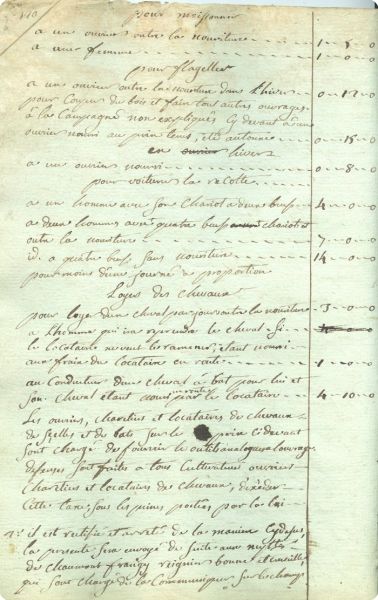 110
pour moissonner
a un ouvrier outre la nouriture 1-5-0
a une femme 1-0-0
pour flageller
a un ouvrier outre la nouriture dans L'hiver 0-12-0
pour Couper du bois et faire tout autres ouvrages
à la Campagne non expliqués Cy devant à un
ouvrier nouri au prin tems, eté autonne 0-15-0
en hiver
a un ouvrier nourri 0-8-0
pour voiturer la recolte
a un homme avec son Chariot a deux beufs 4-0-0
a deux hommes avec quatre beufs chariot et
outre la nouriture 7-0-0
id. a quatre beufs sans nouriture 14-0-0
pour moins d'une journé a proportion
Loyer des chevaux
pour loyer d'un cheval par jour outre la nouriture 3-0-0
a L'homme qui ira reprendre le cheval Si
le locataire ne veut le ramener, etant nouri
aux fraix du locataire en route 1-0-0
au Conducteur d'une cheval a bat pour lui et
son cheval etant nouri en route par le locataire 4-10-0
Les ouvriers, charetiers et locataires de chevaux
de Selles et de bats sur le prix ci devant
sont chargé de fournir les outils analogues a louvrage
defenses sont faites a tous Cultivateurs ouvriers
Charetiers et locataires de chevaux, d'exceder
Cette taxe, sous les peines portées par la loi
il est ratifié et arreté de la maniere Cy dessus,
la presente sera envoyé de suite aux
de chaumont frangy bonne et
qui sont chargé de la Communiquer, sur le champ